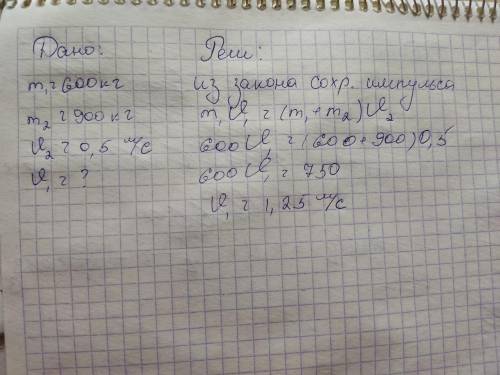 Дано:
m₁ = 600 кг
m₂ = 900 кг
υ₂ = 0,5 м/с
υ₁ = ?
Реш:
из закона сохр. импульса
m₁υ₁ = (m₁+m₂)υ₂
600υ₁ = (600+900)0,5
600υ₁ = 750
υ₁ = 1,25 м/с